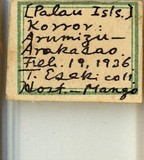 [Palau Isls.]
Korror:
Arumizu—
Arakabao.
Feb. 19, 1936
T. Esaki coll
Host.—Mango